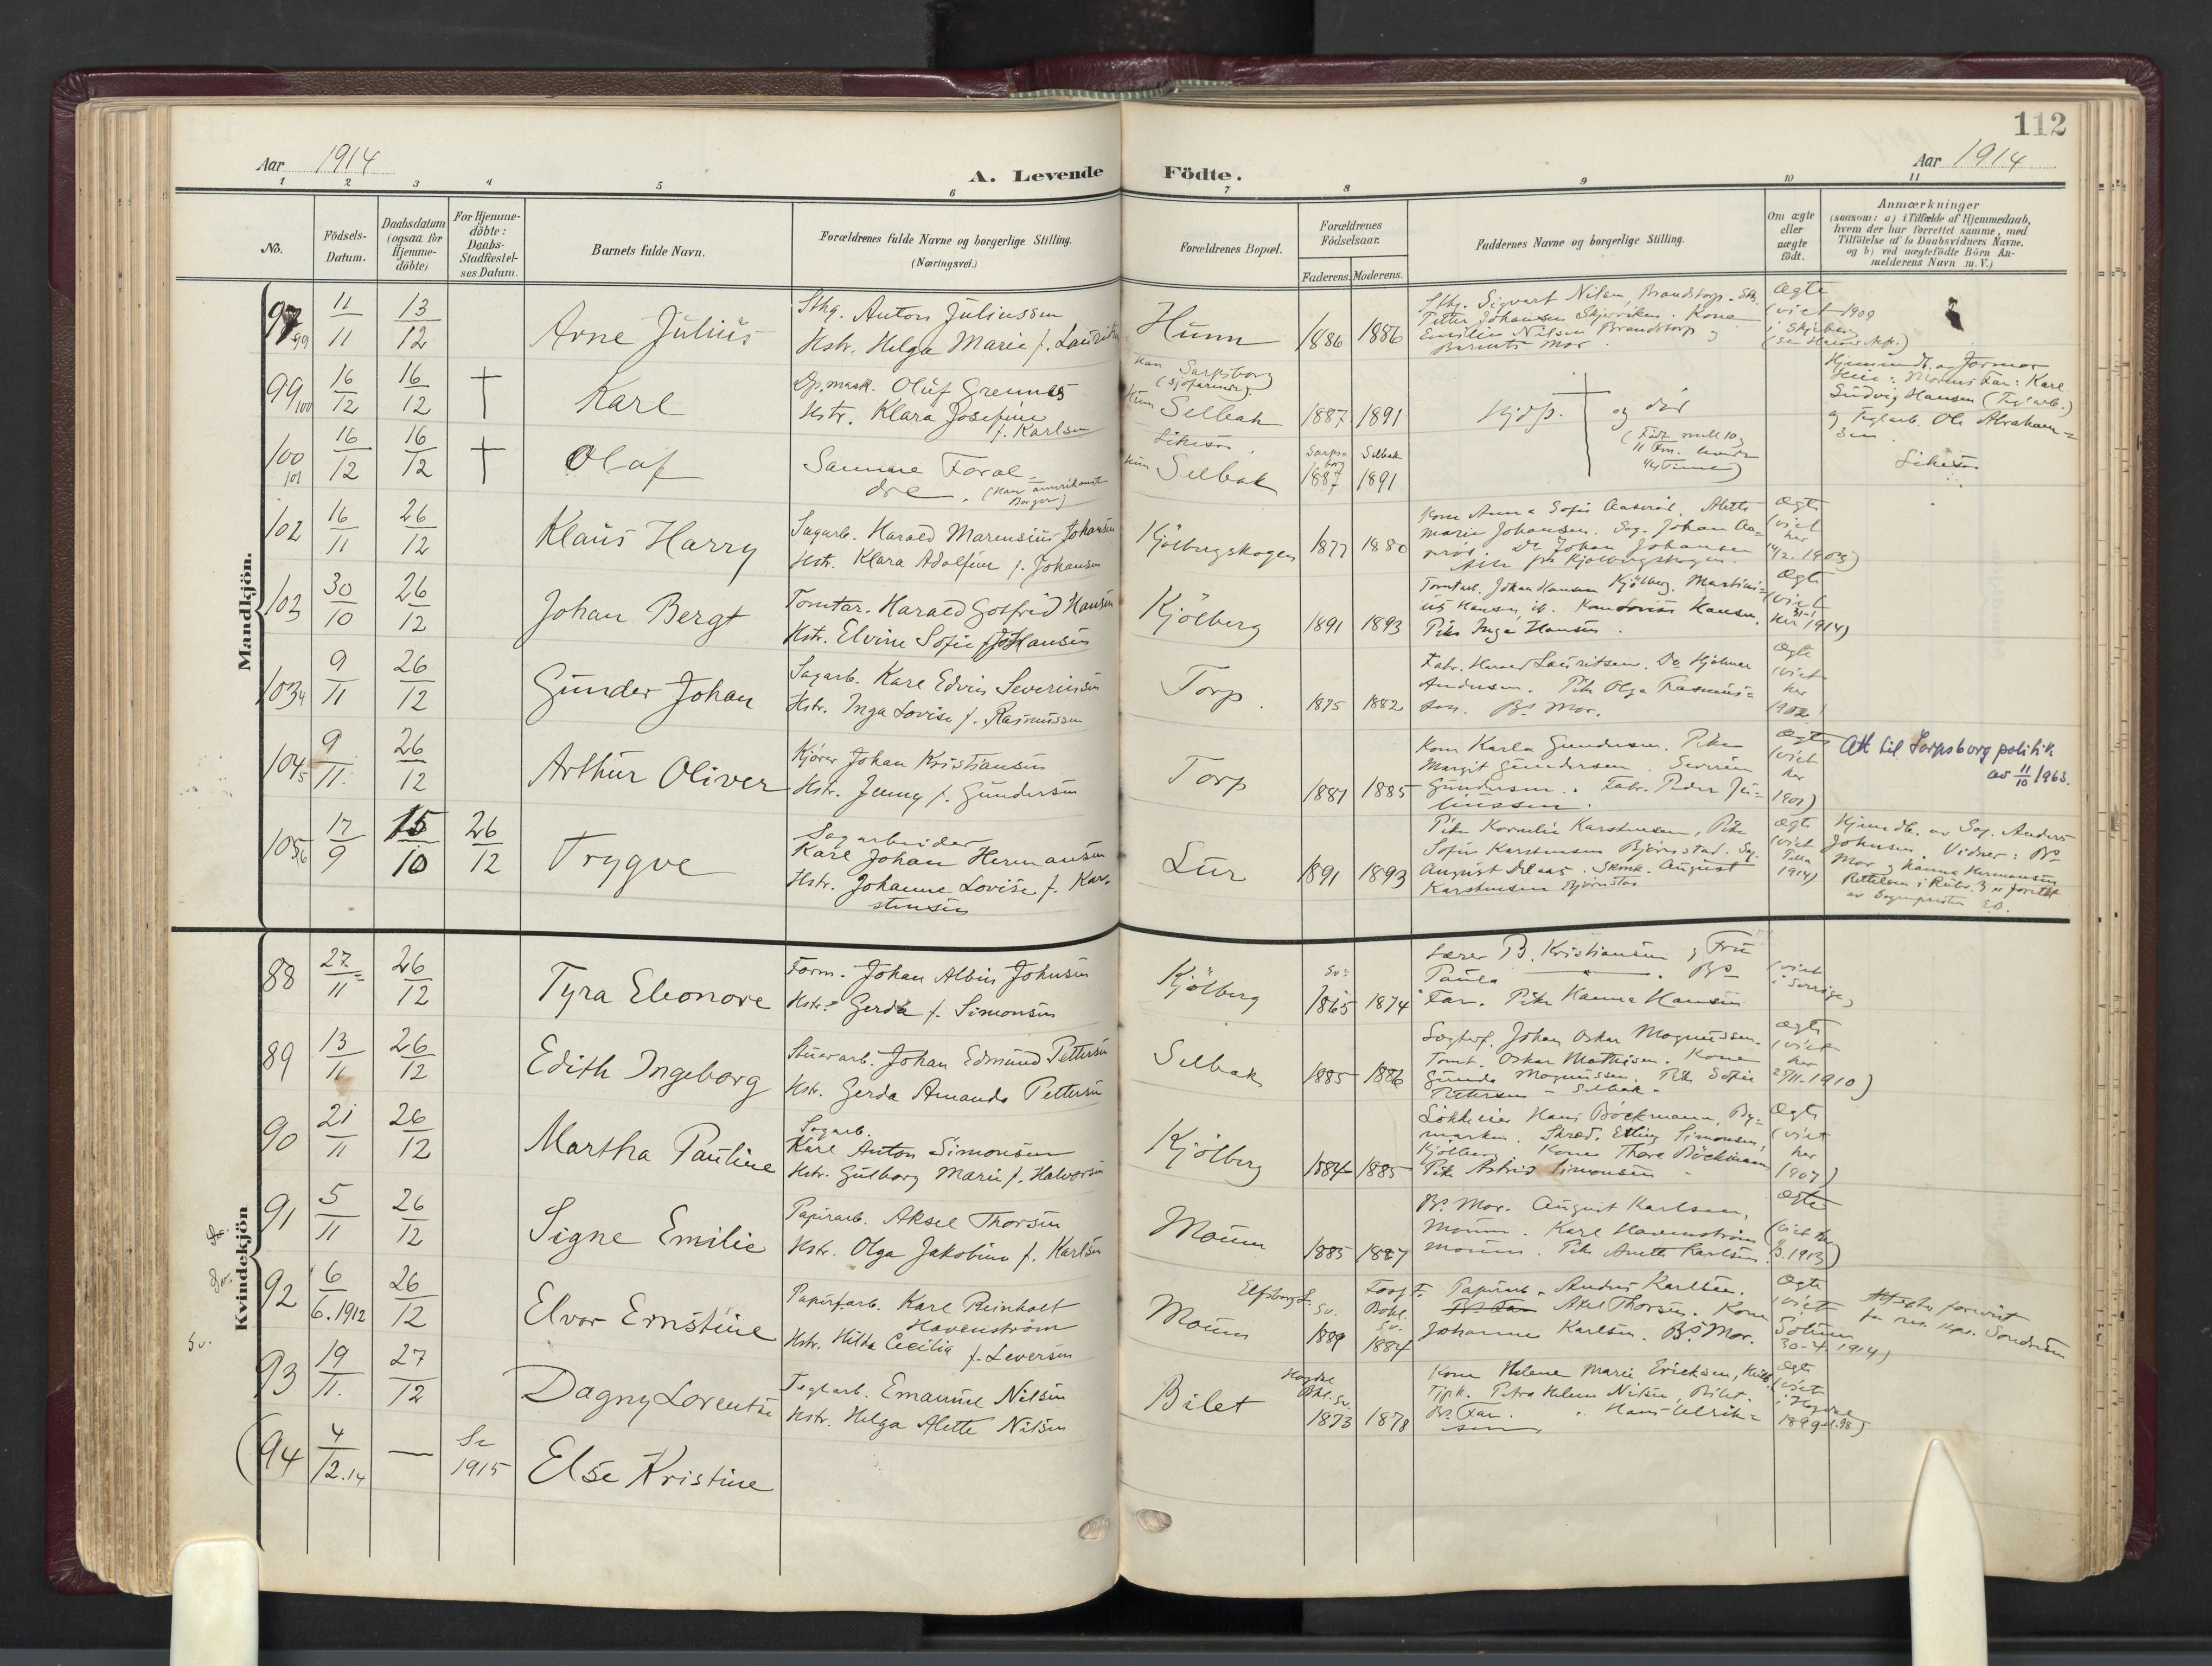 112
Aar 1914
A. Levende Födte.
Aar 1914
1 2 3 4 5 6 7 8 9 10 11
No.
Födsels-
Datum.
Daabsdatum
(ogsaa for
Hjemme-
döbte)
For Hjemme-
döbte:
Daabs-
Stadfæstel-
ses Datum.
Barnets fulde Navn.
Forældrenes fulde Navne og borgerlige Stilling.
(Næringsvei.)
Forældrenes Bopæl.
Forældrenes
Födselsaar.
Faderens. Moderens.
Faddernes Navne og borgerlige Stilling.
Om ægte
eller
uægte
födt.
Anmærkninger
(saasom: a) i Tilfælde af Hjemmedaab,
hvem der har forrettet samme, med
Tilföielse af to Daabsvidners Navne.
og b) ved uægtefödte Börn An-
melderens Navn m. V.)
Mandkjön.
97 99
11/11
13/12
Arne Julius
Sthg. Anton Juliussen
Hstr. Helga Marie f. Lauritsen
Hunn
1886 1886
Sthg. Sigvart Nilsen, Brandstorp.
Petter Johansen Skjørviken. Kone
Emilie Nilsen Brandstorp og
Barnets Mor.
Ægte
(viet 1909
i Skjeberg
99 100
16/12
16/12
†
Karl
Oluf Grennes
Hstr. Klara Josefine
f. Karlsen
Han Sarpsborg
(Sjöfarende)
Hun Selbak
1887 1891
Hjdp. † og död
Karl
Ludvig Hansen (Teglarb.)
og Teglarb. Ole Abraham=
sen
100 101
16/12
16/12
†
Olaf
Samme Foræl=
dre. (Han amerikansk
Borger)
Likesaa
Hun Selbak
Sarps-
borg
1887
Selbak
1891
Likesaa
102
16/11
26/12
Klaus Harry
Sagarb. Harald Marensius Johansen
Hstr. Klara Adolfine f. Johansen
Kjölbergskogen
1877 1880
Kone Anna Sofie Aaseröd. Alette
Marie Johansen. Sag. Johan Aa=
seröd. Do Johan Johansen
Ægte
(viet
her
1903)
103
30/10
26/12
Johan Bergt
Tomtar. Harald Gotfred Hansen
Hstr. Elvine Sofie f. Johansen
Kjölberg
1891 1893
Tomtarb. Johan Hansen Kjölberg. Martini=
us Hansen, ib. Kone Lovise Hansen.
Pike Inga Hansen.
Ægte
(viet
her 1914)
103 4
9/11
26/12
Gunder Johan
Sagarb. Karl Edvin Severinsen
Hstr. Inga Lovise f. Rasmussen
Torp.
1875 1882
Fabr. Harald Lauritsen. Do Hjalmar
Andersen. Pike Olga Rasmus=
sen. Bs Mor.
Ægte
(viet
her
1902)
104 5
9/11.
26/12
Arthur Oliver
Kjörer Johan Kristiansen
Hstr. Jenny f. Gundersen
Torp
1881 1885
Kone Karla Gundersen. Pike
Margit Gundersen. Severin
Gundersen. Fabr. Peder Ju=
liussen.
Ægte
(viet
her
1907)
Att til Sarpsborg politik
av 11/10 1963.
105 6
17/9
15/10
26/12
Trygve
Sagarbeider
Karl Johan Hermansen
Hstr. Johanne Lovise f. Kar=
stensen
Lur
1891 1893
Pike Kornelie Karstensen, Pike
Sofie Karstensen Bjørnstad. Sag.
August Karstensen Bjørnstad
Ægte
(viet
1914)
Hjemdb. av Sag. Anders
Johnsen. Vidner: Bs
Mor og Hanna Hermansen
Rettelsen i Rubr. 3 er foretat
av Sogneprsten EB.
Kvindekjön
88
27/11
26/12
Tyra Eleonore
Form. Johan Albin Johnsen
Hstr. Gerda f. Simonsen
Kjölberg
Sv.
1865 1874
Lærer B. Kristiansen og Fru
Paula. Bs
Far. Pike Hanna Hansen
(viet
i Sverige)
89
13/11
26/12
Edith Ingeborg
Stuerarb. Johan Edmund Pettersen
Hstr. Gerda Amanda Pettersen
Selbak
1885 1886
Johan Oskar Magnussen.
Tomt. Oskar Mathisen. Kone
Gunda Magnussen. Pike Sofie
Pettersen - Selbak.
Ægte
(viet
her
25/11-1910)
90
21/11
26/12
Martha Pauline
Sagarb.
Karl Anton Simonsen
Hstr. Gulborg Marie f. Halvorsen
Kjölberg
1884 1885
Hans Böckmann, By=
marken. Skræd. Erling Simonsen,
Kjölberg. Kone Thora Böckmann
Pike Astrid Simonsen
Ægte
(viet
her
1907)
91
5/11
26/12
Signe Emilie
Papirarb. Aksel Thorsen
Hstr. Olga Jakobine f. Karlsen
Moum
1885 1887
Bs Mor. August Karlsen,
Moum. Karl Havenström
Moum. Pike Anette Karlsen.
Ægte
(viet her
1913)
92
6/6.1912
26/12
Elvor Ernstine
Papirfarb. Karl Reinholt
Havenström
Hstr. Hilda Cecilia f. Seversen
Elfsborg L.
Moum
Sv.
1889
Bohl.
Sv.
1884
Papirarb. Anders Karlsen.
Bs Far Axel Thorsen. Kone
Johanne Karlsen. Bs Mor.
Ægte
(viet
30-4 1914)
Sv.
93
19/11.
27/12
Dagny Lorentse
Teglarb. Emanuel Nilsen
Hstr. Helga Alette Nilsen
Bilet
Bhl. Sv.
1873 1878
Kone Helene Marie Ericksen,
Tjpk. Petra Helene Nilsen, Bilet.
Bs Far. Hans Ulrik=
sen
Ægte
(viet
(94
4/12.14
—
Se
1915
Else Kristine